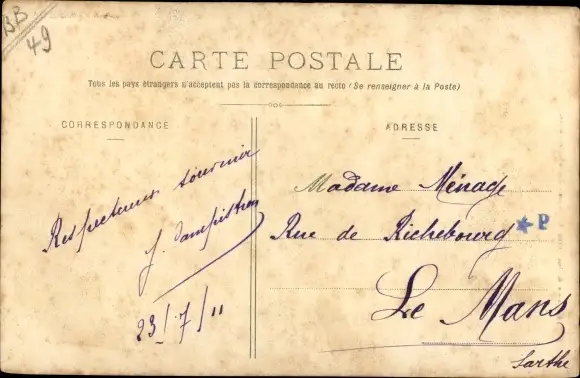 BB
49
CARTE POSTALE
Tous les pays étrangers n'acceptent pas la correspondance au recto (Se renseigner à la Poste)
CORRESPONDANCE
Respectueux souvenir
J.
23/7/11
ADRESSE
Madame Ménage
Rue de Richebourg
P
Le Mans
Sarthe